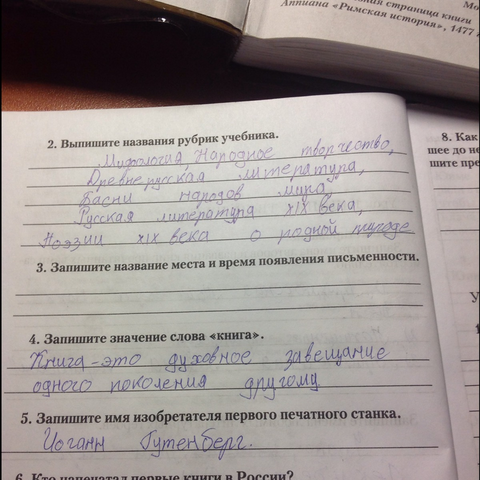 вная страница книги
Аппиана «Римская история», 1477 г
Мо
2. Выпишите названия рубрик учебника.
Мифология, Народное творчество,
Древнерусская литература,
Басни народов мира,
Русская литература XIX века,
Поэзии XIX века о родной природе
3. Запишите название места и время появления письменности.
4. Запишите значение слова «книга».
Книга – это духовное завещание
одного поколения другому
5. Запишите имя изобретателя первого печатного станка.
Иоганн Гутенберг.
6. Кто напечатал первые книги в России?
8. Как
шее до не
шите пре